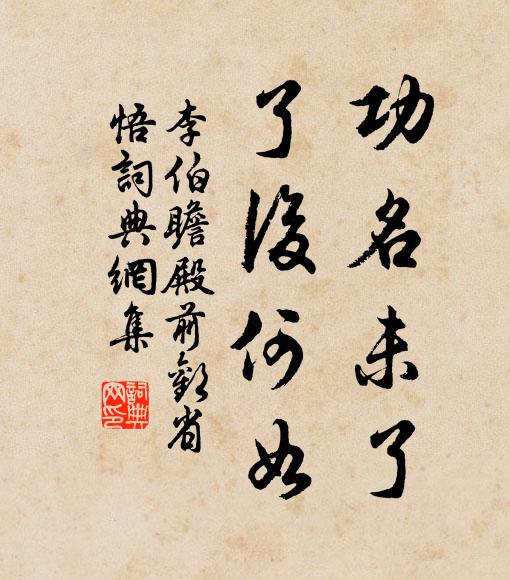 功名未了
了後何如
李伯瞻殿前歡省
悟詞典網集
詞典
网印